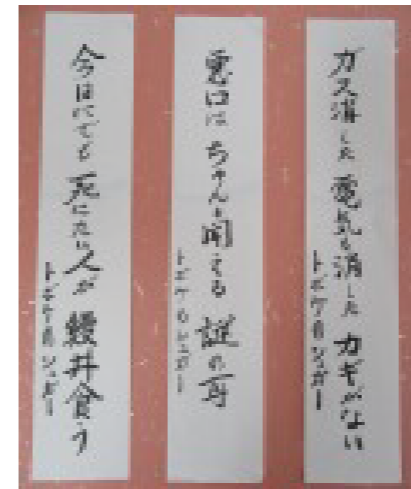 ガス消した 電気も消した カギがない
トボケ シュガー
悪口は ちゃんと聞える 謎の耳
トボケ シュガー
今日にでも 死にたい人が 鰻丼食う
トボケ シュガー